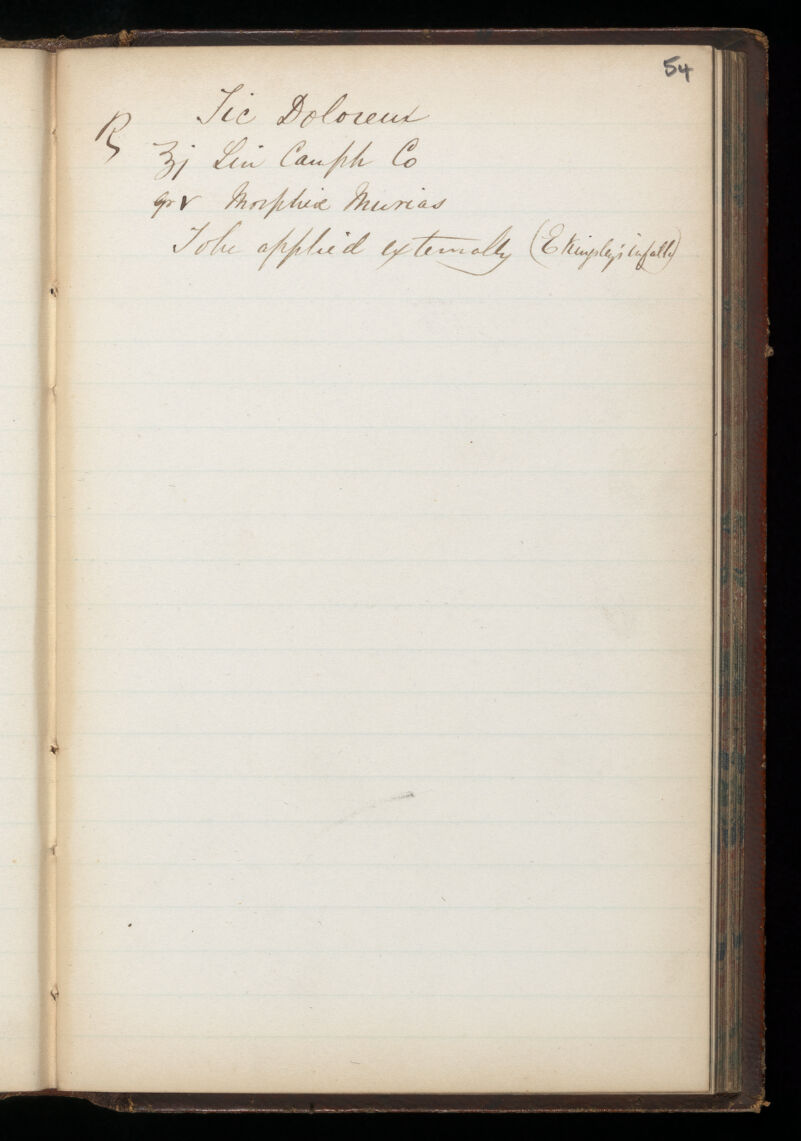 54
Tic Doloreux
℞
ʒj Lin Camph Co
gr v Morphiæ Murias
To be applied externally (E Kingsley's infall)